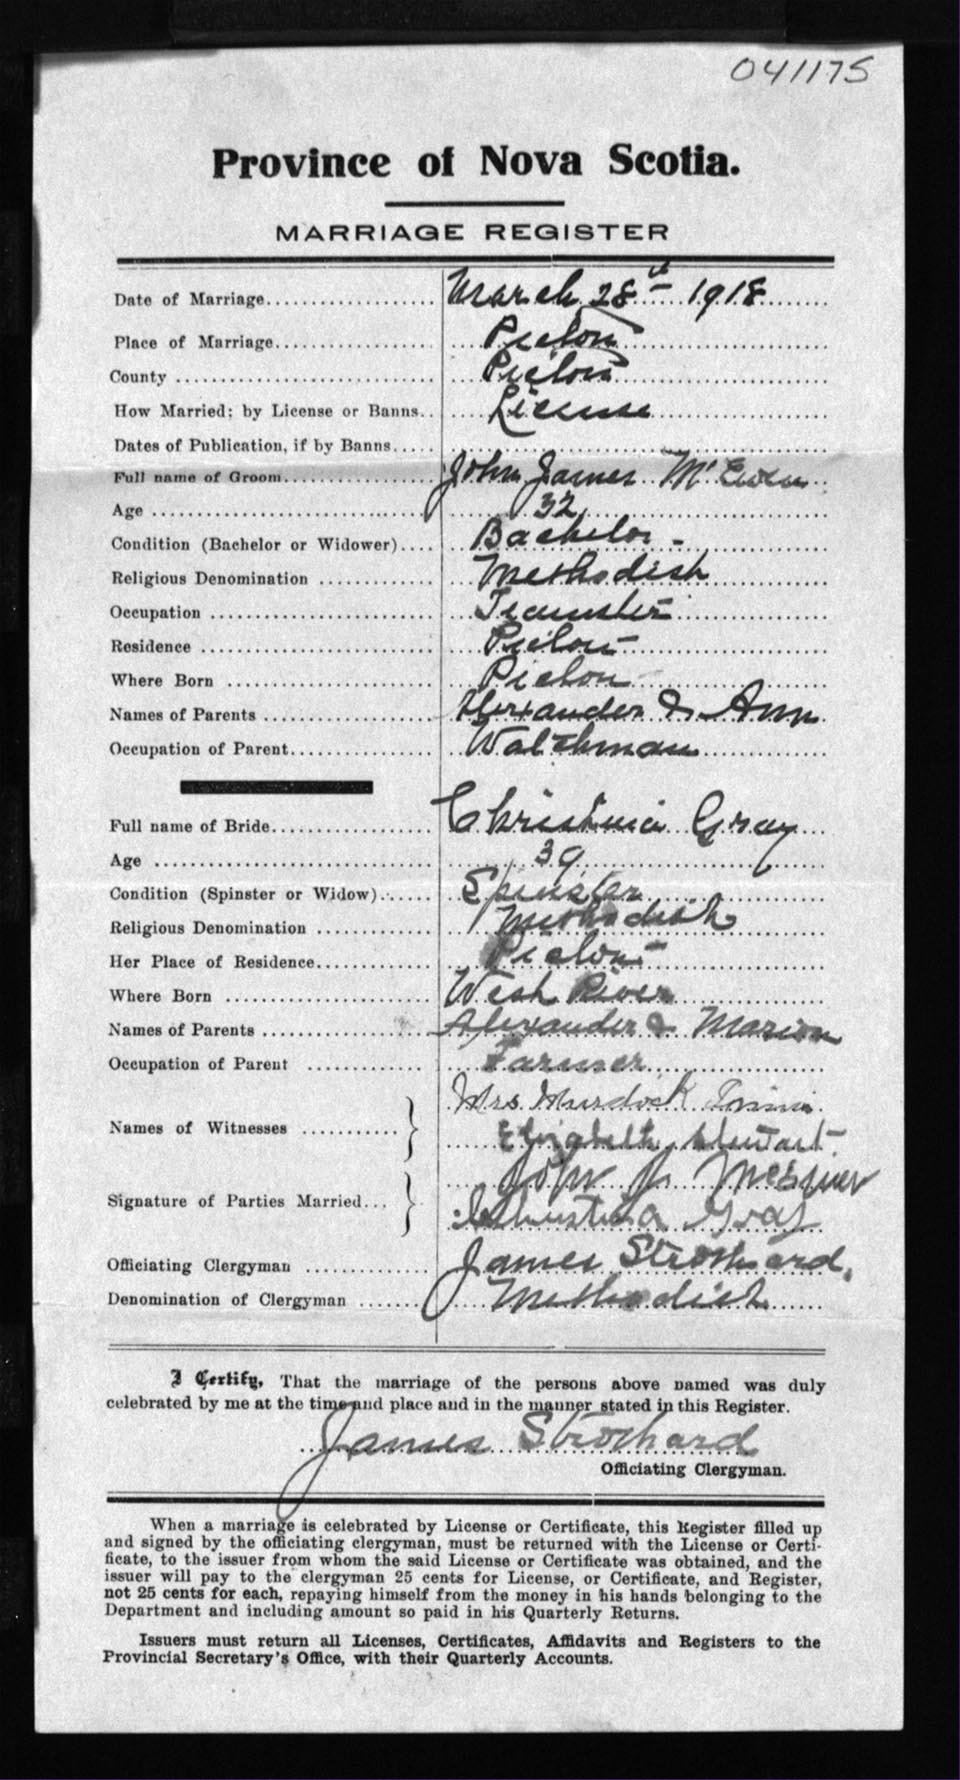 041175
Province of Nova Scotia.
MARRIAGE REGISTER
Date of Marriage.................. March 28th 1918
Place of Marriage.................. Pictou
County .................. Pictou
How Married; by License or Banns.. License
Dates of Publication, if by Banns.....
Full name of Groom.................. John James McEwen
Age .................. 32
Condition (Bachelor or Widower).... Bachelor -
Religious Denomination .................. Methodist
Occupation .................. Teamster
Residence .................. Pictou
Where Born .................. Pictou
Names of Parents .................. Alexander & Ann
Occupation of Parent.................. Watchman
Full name of Bride.................. Christina Gray
Age .................. 39
Condition (Spinster or Widow)...... Spinster
Religious Denomination .................. Methodist
Her Place of Residence.................. Pictou
Where Born .................. West River
Names of Parents .................. Alexander & Marion
Occupation of Parent .................. Farmer
Mrs. Murdock
Names of Witnesses ..................
Elizabeth Stewart
John J. McEwen
Signature of Parties Married...
Christina Gray
Officiating Clergyman .................. James Strothard,
Denomination of Clergyman ........ Methodist
I Certify, That the marriage of the persons above named was duly
celebrated by me at the time and place and in the manner stated in this Register.
James Strothard
Officiating Clergyman.
When a marriage is celebrated by License or Certificate, this Register filled up
and signed by the officiating clergyman, must be returned with the License or Certi-
ficate, to the issuer from whom the said License or Certificate was obtained, and the
issuer will pay to the clergyman 25 cents for License, or Certificate, and Register,
not 25 cents for each, repaying himself from the money in his hands belonging to the
Department and including amount so paid in his Quarterly Returns.
Issuers must return all Licenses, Certificates, Affidavits and Registers to the
Provincial Secretary's Office, with their Quarterly Accounts.